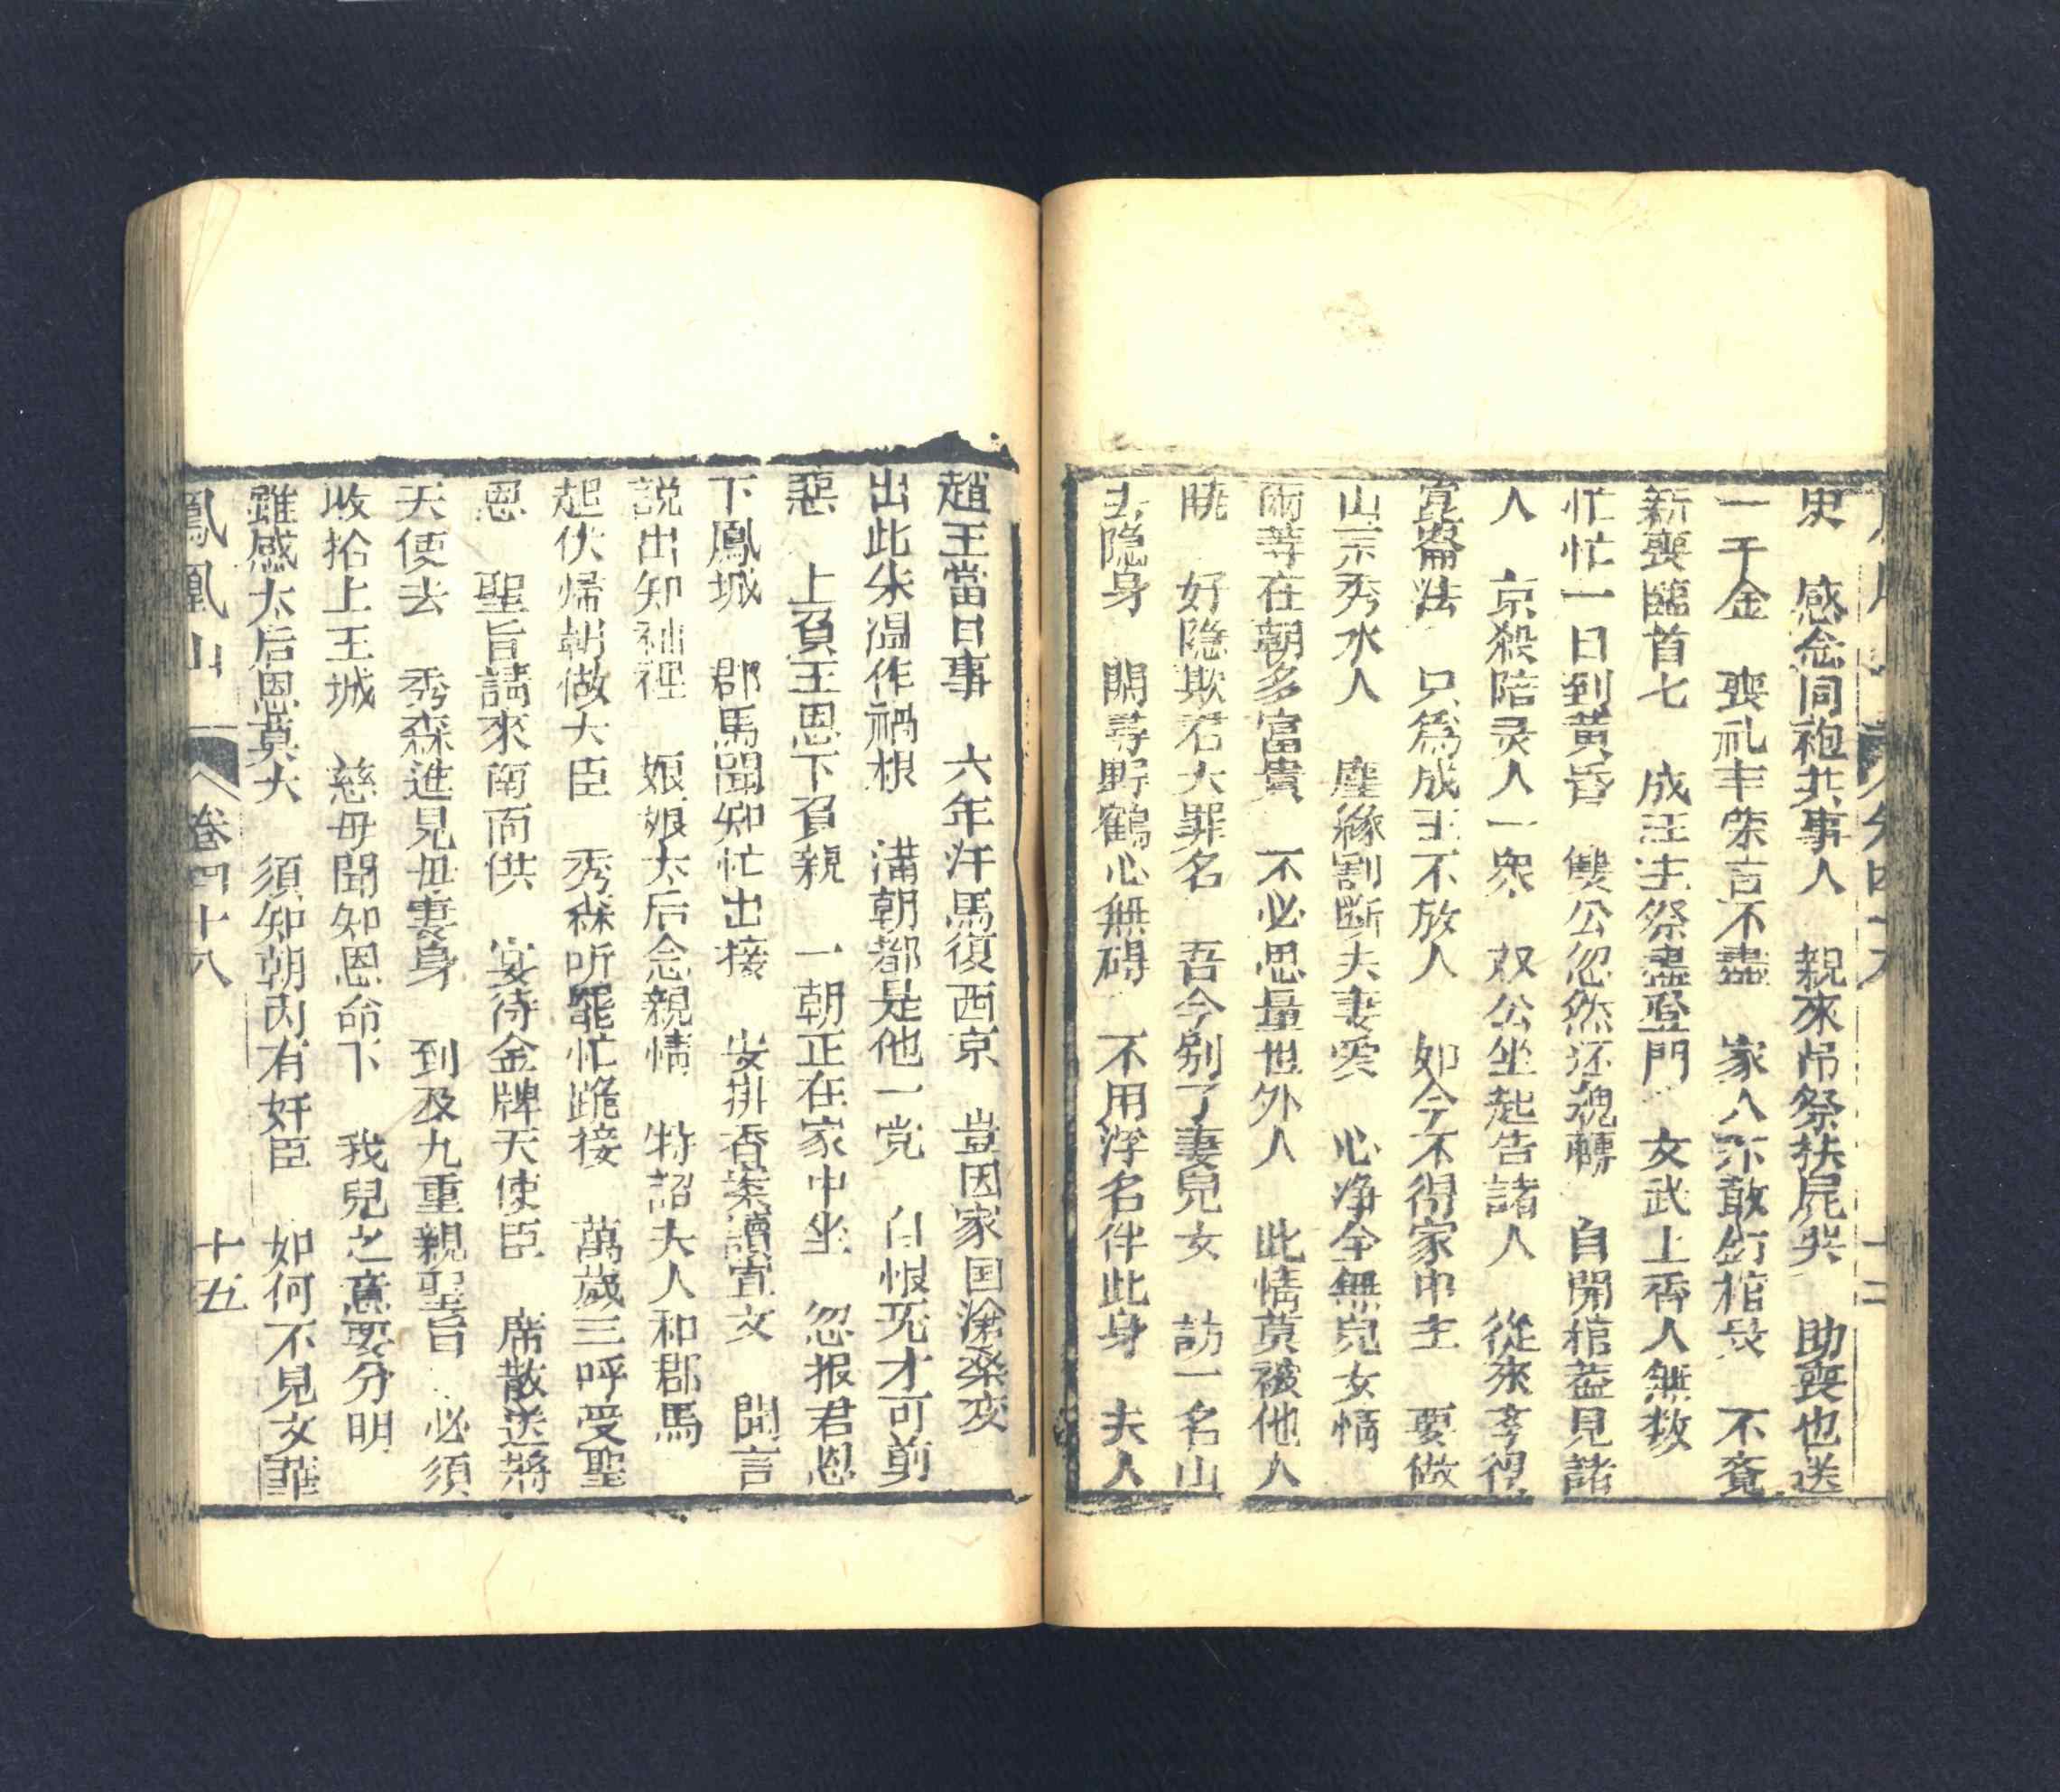 史 感念同袍共事人 親來吊祭扶屍哭 助喪也送
一千金 喪礼丰荣言不盡 家人不敢釘棺長 不覚
新喪臨首七 成王主祭盡登門 文武上香人無数
忙忙一日到黄昏 雙公忽然还魂轉 自開棺蓋見諸
人 京殺陪灵人一衆 双公坐起告諸人 從來李得
崑崙法 只為成王不放人 如今不得家中主 要做
山宗秀水人 塵緣割断夫妻爱 心净全無兒女情
爾等在朝多富貴 不必思量世外人 此情莫被他人
曉 好隐欺君大罪名 吾今别了妻兒女 訪一名山
去隐身 閑尋野鶴心無碍 不用浮名伴此身 夫人
趙王當日事 六年汗馬復西京 豈因家国滄桑变
出此朱温作禍根 滿朝都是他一党 自恨无才可剪
惡 上負王恩下負親 一朝正在家中坐 忽报君恩
下鳳城 郡馬聞知忙出接 安排香案讀宣文 開言
説出知衲裡 娘娘太后念親情 特詔夫人和郡馬
起伏帰朝做大臣 秀森听罷忙跪接 萬歲三呼受聖
恩 聖旨請來南面供 宴待金牌天使臣 席散送將
天使去 秀森進見母妻身 到及九重親聖旨 必須
收拾上王城 慈母聞知恩命下 我兒之意要分明
雖感太后恩莫大 須知朝内有奸臣 如何不見文華
鳳凰山 卷四十八 十五